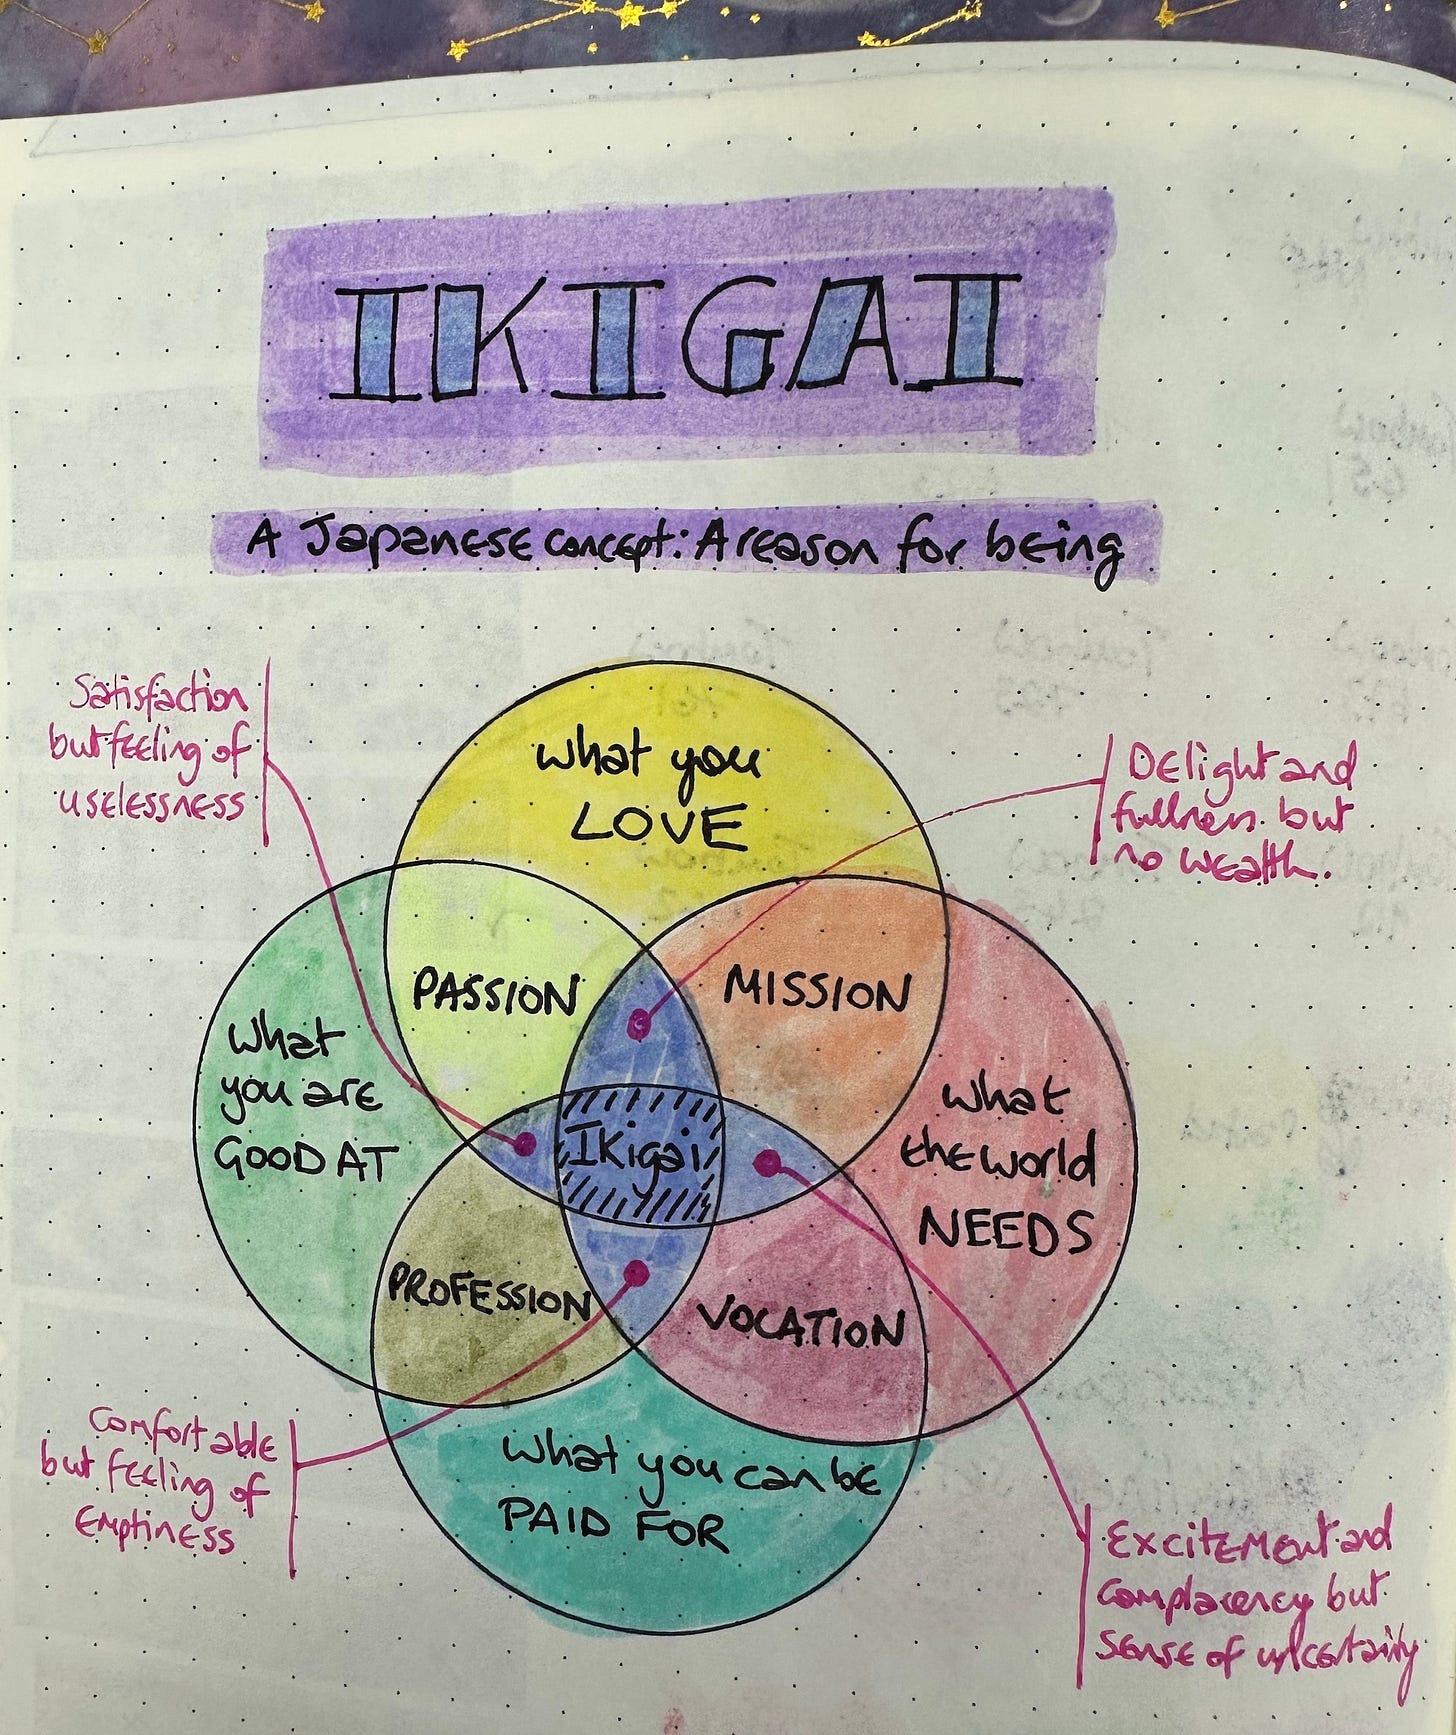 IKIGAI
A Japanese concept: A reason for being
Satisfaction
but feeling of
uselessness
Delight and
fullness but
no wealth.
What you
LOVE
PASSION
MISSION
What
you are
GOOD AT
What
the world
NEEDS
IKigai
PROFESSION
VOCATION
What you can be
PAID FOR
Comfortable
but feeling of
Emptiness
Excitement and
complacency but
sense of uncertainty